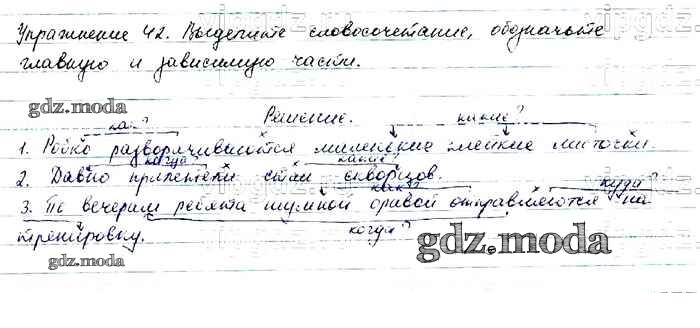 Упражнение 42. Выделите словосочетание, обозначьте
главную и зависимую части.
gdz.moda
Решение.
как? какие?
1. Робко разворачиваются маленькие клейкие листочки.
когда какие?
2. Давно прилетели стаи скворцов.
gdz.moda
как? куда?
3. По вечерам ребята шумной оравой отправляются на
когда?
тренировку.
gdz.moda
gdz.moda